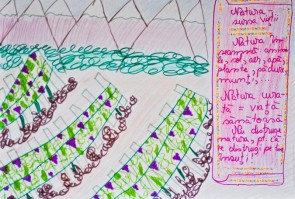 Natura,
sursa vieții
Natura în-
seamnă anima-
le, sol, aer, apă,
plante, păduri,
munți,...
Natură cura-
tă = viață
sănătoasă
Nu distruge
natura, pt. că
te distrugi pe tine
însuți!